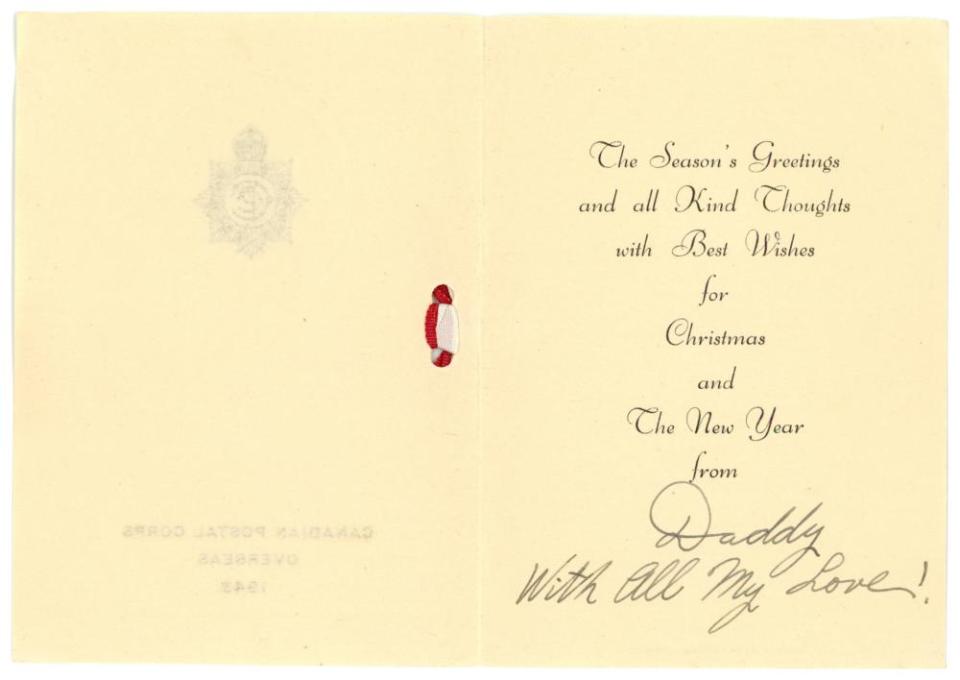 CANADIAN POSTAL CORPS
OVERSEAS
1943
The Season's Greetings
and all Kind Thoughts
with Best Wishes
for
Christmas
and
The New Year
from
Daddy
With All My Love!